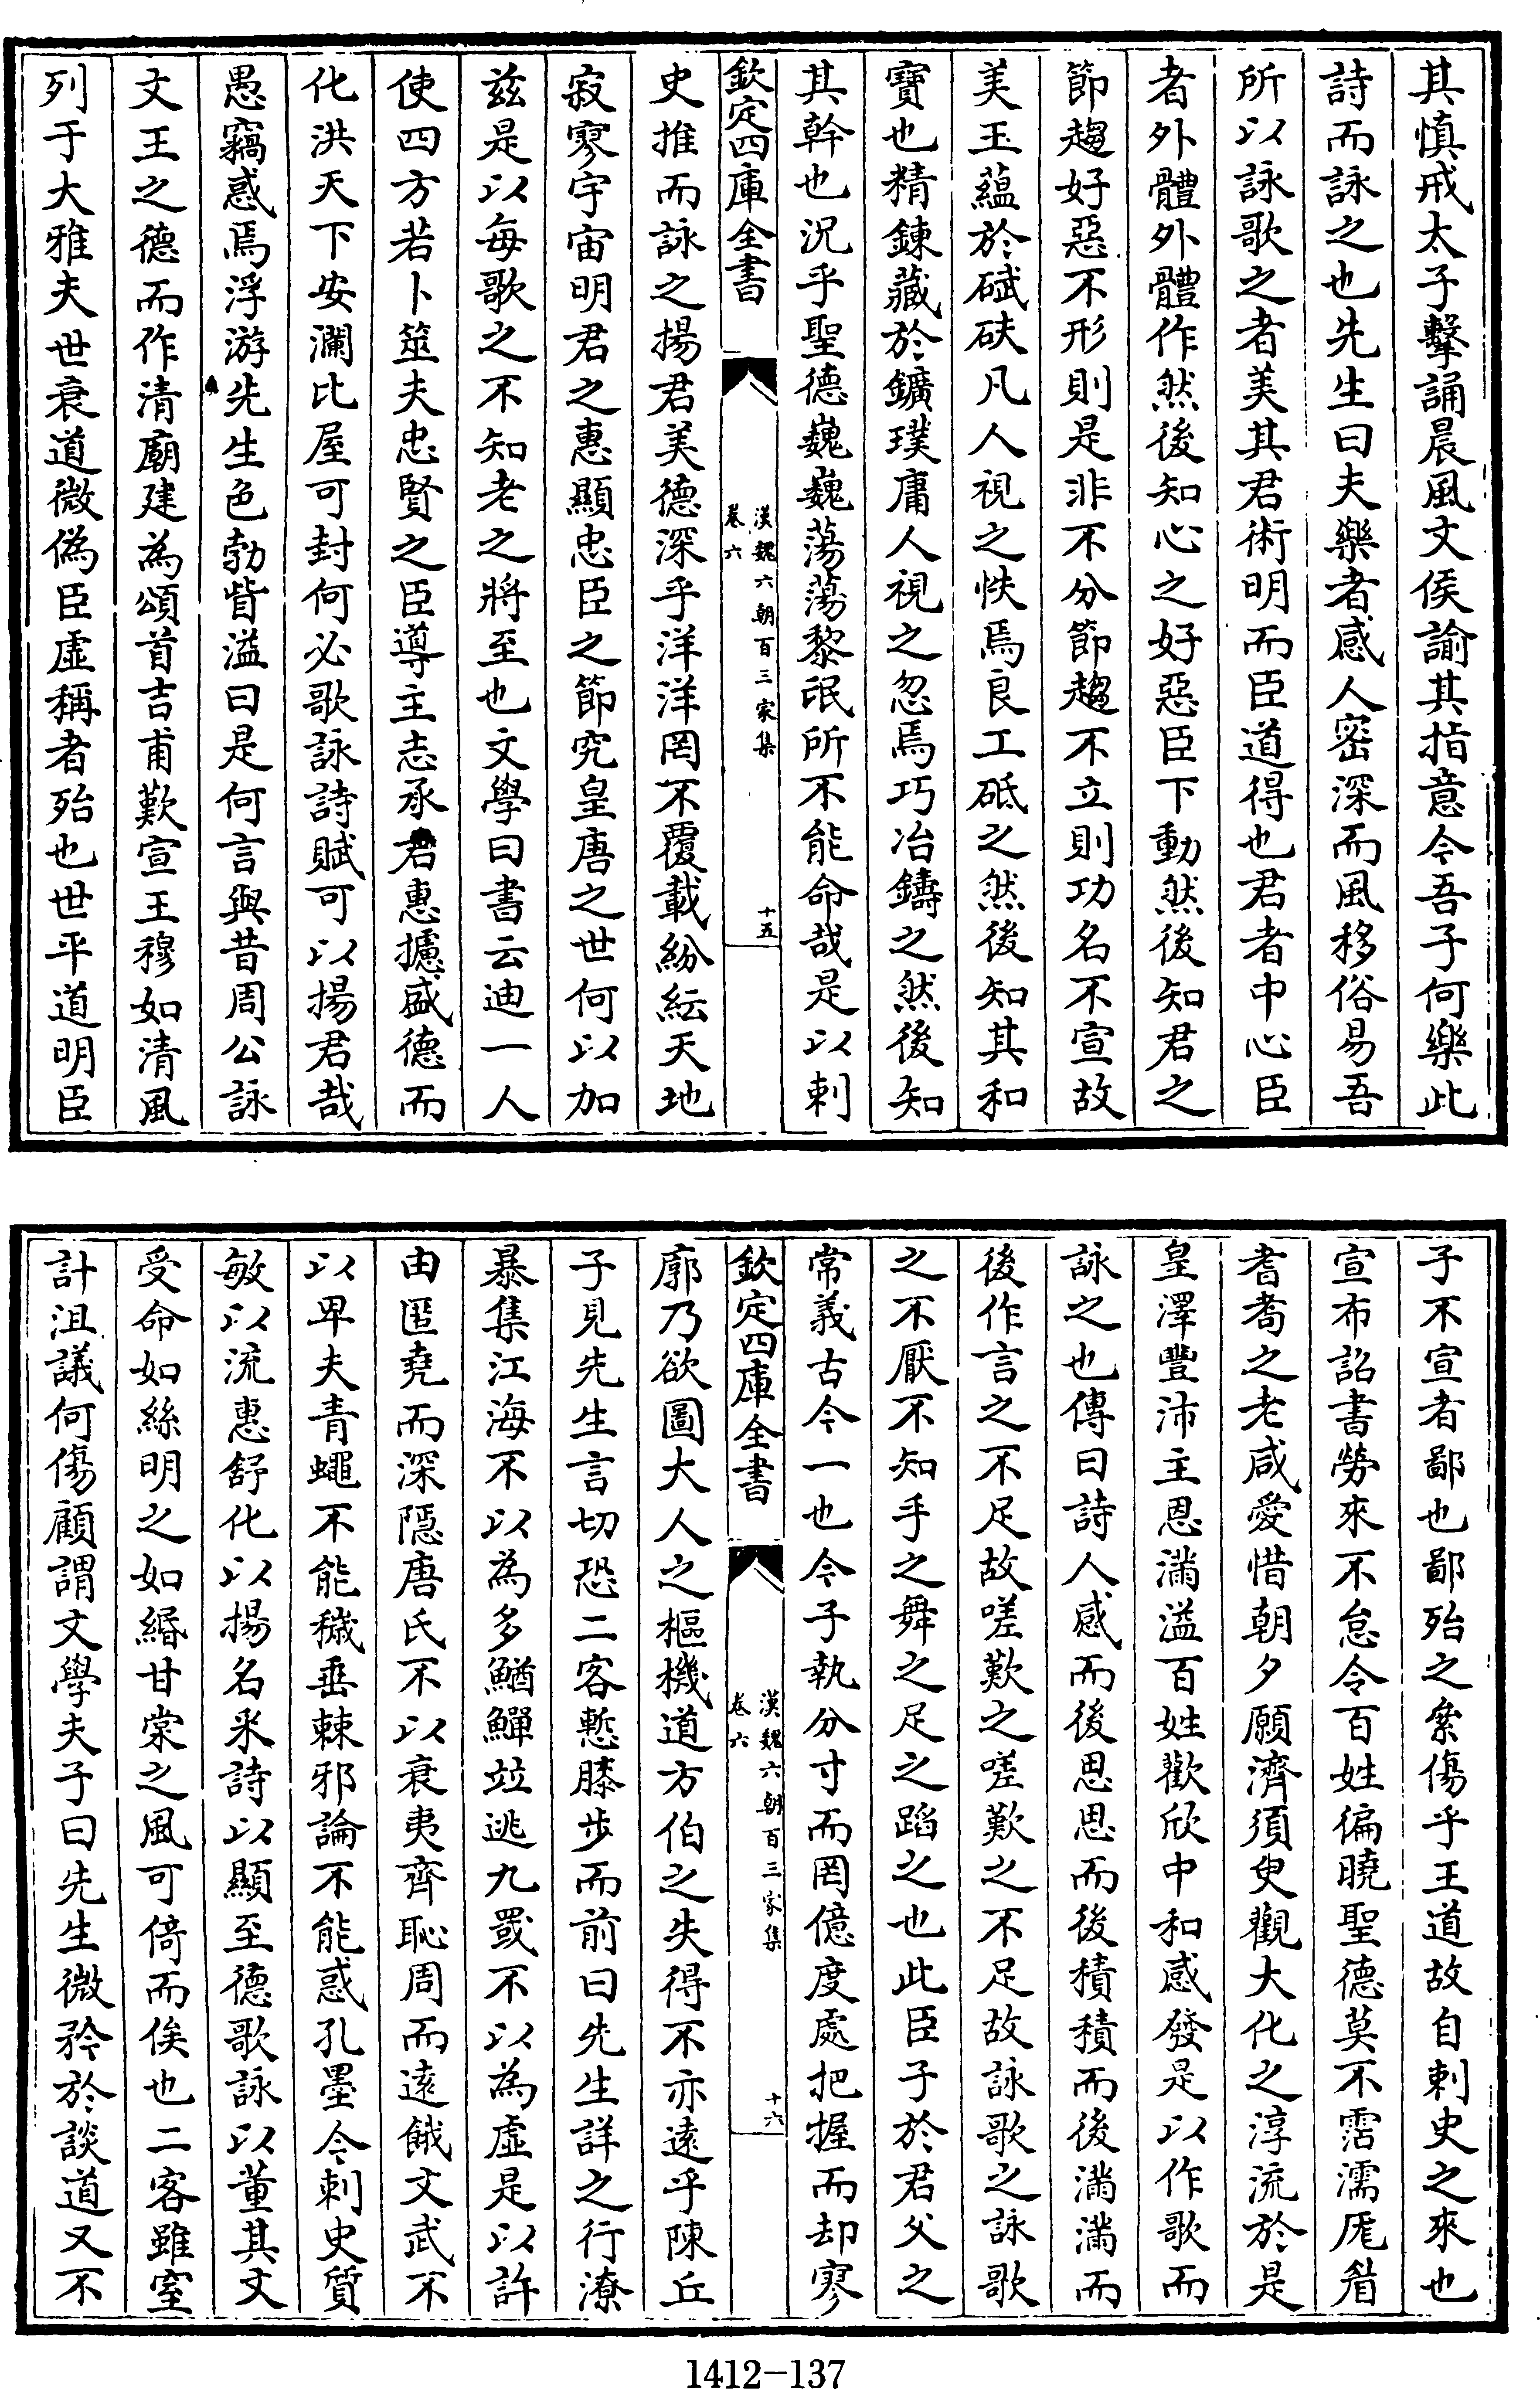 其慎戒太子擊誦晨風文侯諭其指意今吾子何樂此
詩而詠之也先生曰夫樂者感人密深而風移俗易吾
所以詠歌之者美其君術明而臣道得也君者中心臣
者外體外體作然後知心之好惡臣下動然後知君之
節趨好惡不形則是非不分節趨不立則功名不宣故
美玉蘊於碔砆凡人視之怢焉良工砥之然後知其和
寶也精鍊藏於鑛璞庸人視之忽焉巧冶鑄之然後知
其幹也況乎聖德巍巍蕩蕩黎氓所不能命哉是以刺
欽定四庫全書
漢魏六朝百三家集
卷六
十五
史推而詠之揚君美德深乎洋洋罔不覆載紛紜天地
寂寥宇宙明君之惠顯忠臣之節究皇唐之世何以加
兹是以每歌之不知老之將至也文學曰書云迪一人
使四方若卜筮夫忠賢之臣導主志承君惠攄盛德而
化洪天下安瀾比屋可封何必歌詠詩賦可以揚君哉
愚竊惑焉浮游先生色勃眥溢曰是何言與昔周公詠
文王之德而作清廟建為頌首吉甫歎宣王穆如清風
列于大雅夫世衰道微偽臣虛稱者殆也世平道明臣
子不宣者鄙也鄙殆之絫傷乎王道故自刺史之來也
宣布詔書勞來不怠令百姓徧曉聖德莫不霑濡厖眉
耆耇之老咸愛惜朝夕願濟須臾觀大化之淳流於是
皇澤豐沛主恩滿溢百姓歡欣中和感發是以作歌而
詠之也傳曰詩人感而後思思而後積積而後滿滿而
後作言之不足故嗟歎之嗟歎之不足故詠歌之詠歌
之不厭不知手之舞之足之蹈之也此臣子於君父之
常義古今一也今子執分寸而罔億度處把握而却寥
欽定四庫全書
漢魏六朝百三家集
卷六
十六
廓乃欲圖大人之樞機道方伯之失得不亦遠乎陳丘
子見先生言切恐二客慙膝步而前曰先生詳之行潦
暴集江海不以為多鰌鱓竝逃九罭不以為虛是以許
由匿堯而深隱唐氏不以衰夷齊恥周而遠餓文武不
以卑夫青蠅不能穢垂棘邪論不能惑孔墨今刺史質
敏以流惠舒化以揚名采詩以顯至德歌詠以董其文
受命如絲明之如緡甘棠之風可倚而俟也二客雖窒
計沮議何傷顧謂文學夫子曰先生微矜於談道又不
1412-137